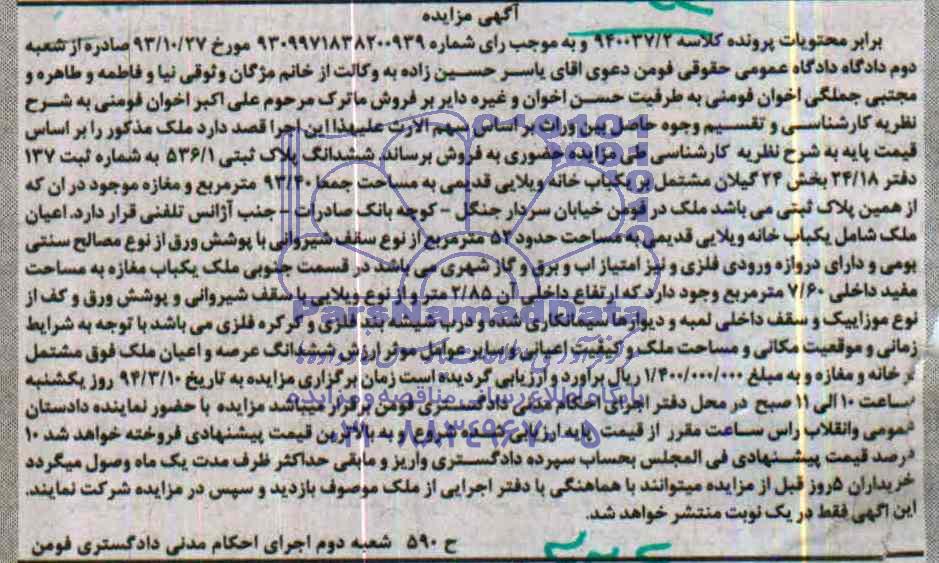 آگهی مزایده
برابر محتویات پرونده کلاسه ۹۴۰۰۳۷/۲ و به موجب رای شماره ۹۳۰۹۹۷۱۸۳۸۲۰۰۹۳۹ مورخ ۹۳/۱۰/۲۷ صادره از شعبه
دوم دادگاه دادگاه عمومی حقوقی فومن دعوی اقای یاسر حسین زاده به وکالت از خانم مژگان وثوقی نیا و فاطمه و طاهره و
مجتبی جملگی اخوان فومنی به طرفیت حسن اخوان و غیره دایر بر فروش ماترک مرحوم علی اکبر اخوان فومنی به شرح
نظریه کارشناسی و تقسیم وجوه حاصل بین وراث بر اساس سهم الارث علیهذا این اجرا قصد دارد ملک مذکور را بر اساس
قیمت پایه به شرح نظریه کارشناسی طی مزایده حضوری به فروش برساند. ششدانگ پلاک ثبتی ۵۳۶/۱ به شماره ثبت ۱۳۷
دفتر ۲۴/۱۸ بخش ۲۴ گیلان مشتمل بر یکباب خانه ویلایی قدیمی به مساحت جمعا ۹۳/۴۰ مترمربع و مغازه موجود در ان که
از همین پلاک ثبتی می باشد ملک در فومن خیابان سردار جنگل - کوچه بانک صادرات - جنب آژانس تلفنی قرار دارد. اعیان
ملک شامل یکباب خانه ویلایی قدیمی به مساحت حدود ۵۲ مترمربع از نوع سقف شیروانی با پوشش ورق از نوع مصالح سنتی
بومی و دارای دروازه ورودی فلزی و نیز امتیاز اب و برق و گاز شهری می باشد در قسمت جنوبی ملک یکباب مغازه به مساحت
مفید داخلی ۷/۶۰ مترمربع وجود دارد که ارتفاع داخلی آن ۲/۸۵ متر و از نوع ویلایی با سقف شیروانی و پوشش ورق و کف از
نوع موزاییک و سقف داخلی لمبه و دیوارها سیمانکاری شده و درب شیشه بند فلزی و کرکره فلزی می باشد با توجه به شرایط
زمانی و موقعیت مکانی و مساحت ملک و کیفیت اعیانی و سایر عوامل موثر ارزش ششدانگ عرصه و اعیان ملک فوق مشتمل
بر خانه و مغازه و به مبلغ ۱/۴۰۰/۰۰۰/۰۰۰ ریال براورد و ارزیابی گردیده است زمان برگزاری مزایده به تاریخ ۹۴/۳/۱۰ روز یکشنبه
ساعت ۱۰ الی ۱۱ صبح در محل دفتر اجرای احکام مدنی دادگستری فومن برقرار میباشد مزایده با حضور نماینده دادستان
عمومی وانقلاب راس ساعت مقرر از قیمت پایه ارزیابی شده شروع و به بالاترین قیمت پیشنهادی فروخته خواهد شد ۱۰
درصد قیمت پیشنهادی فی المجلس بحساب سپرده دادگستری واریز و مابقی حداکثر ظرف مدت یک ماه وصول میگردد
خریداران ۵روز قبل از مزایده میتوانند با هماهنگی با دفتر اجرایی از ملک موصوف بازدید و سپس در مزایده شرکت نمایند.
این اگهی فقط در یک نوبت منتشر خواهد شد.
ح ۵۹۰ شعبه دوم اجرای احکام مدنی دادگستری فومن
ParsNamadData
پایگاه اطلاع رسانی مناقصه و مزایده
۰۲۱-۸۸۳۴۹۶۷۰-۵